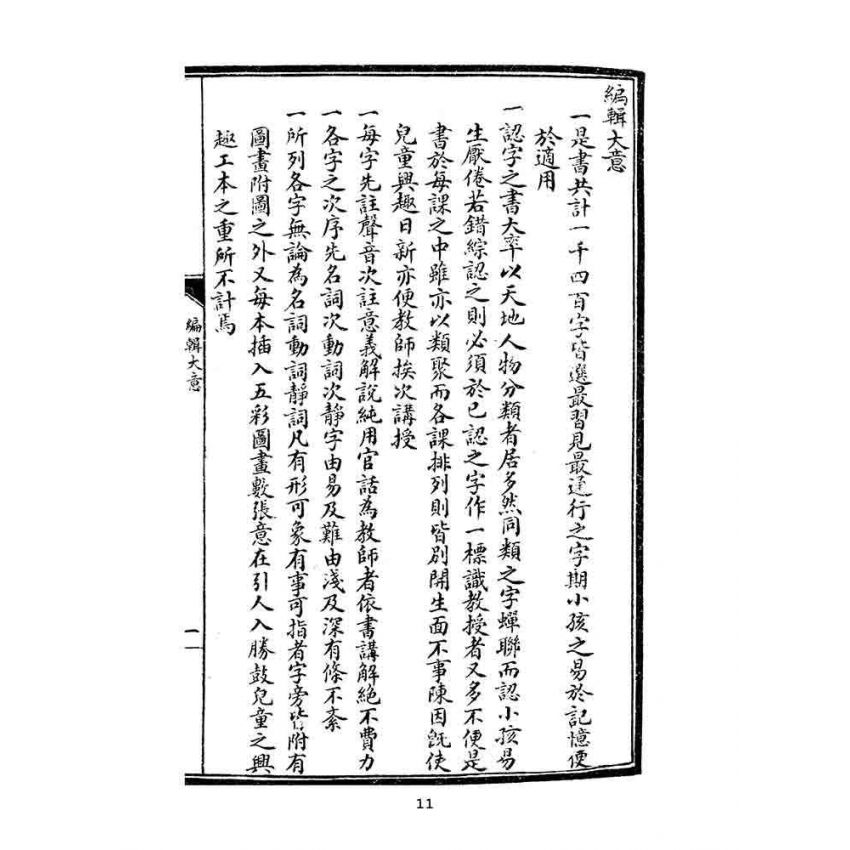 編輯大意
一是書共計一千四百字皆選最習見最通行之字期小孩之易於記憶便
於適用
一認字之書大率以天地人物分類者居多然同類之字蟬聯而認小孩易
生厭倦若錯綜認之則必須於已認之字作一標識教授者又多不便是
書於每課之中雖亦以類聚而各課排列則皆別開生面不事陳因旣使
兒童興趣日新亦便教師挨次講授
一每字先註聲音次註意義解說純用官話為教師者依書講解絕不費力
一各字之次序先名詞次動詞次靜字由易及難由淺及深有條不紊
一所列各字無論為名詞動詞靜詞凡有形可象有事可指者字旁皆附有
圖畫附圖之外又每本插入五彩圖畫數張意在引人入勝鼓兒童之興
趣工本之重所不計焉
編輯大意
一
11